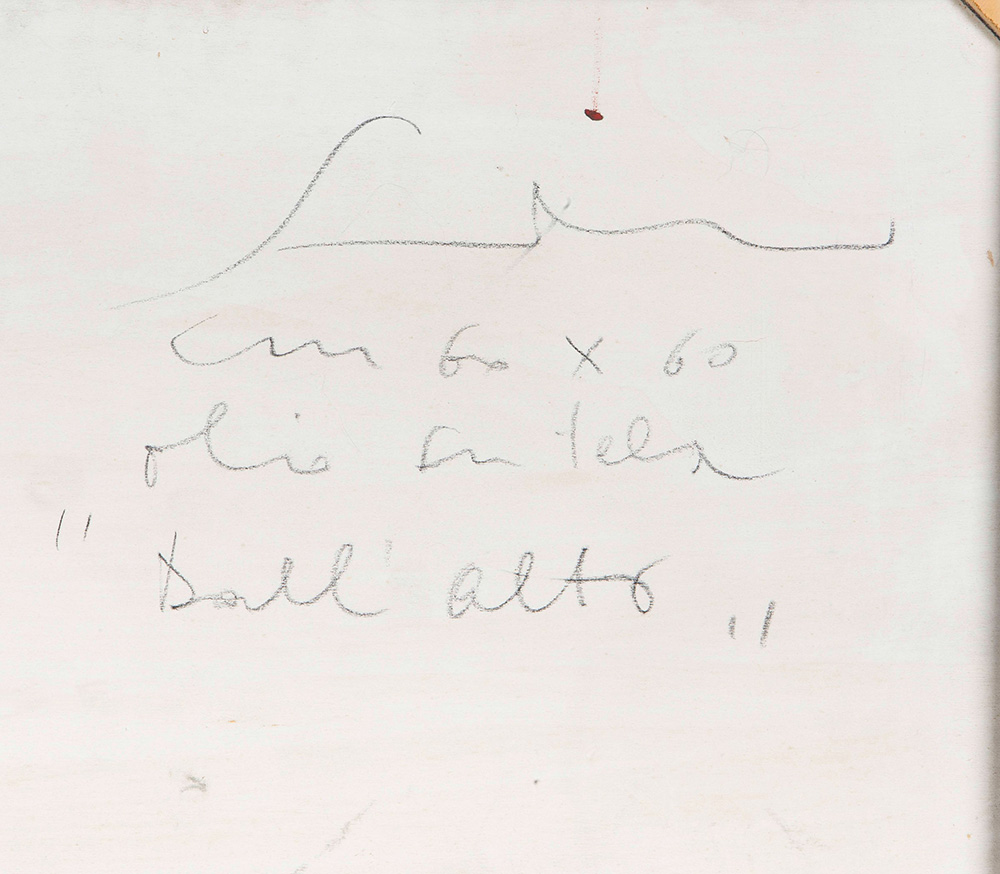 cm 60 x 60
olio su tela
"Dall'alto"